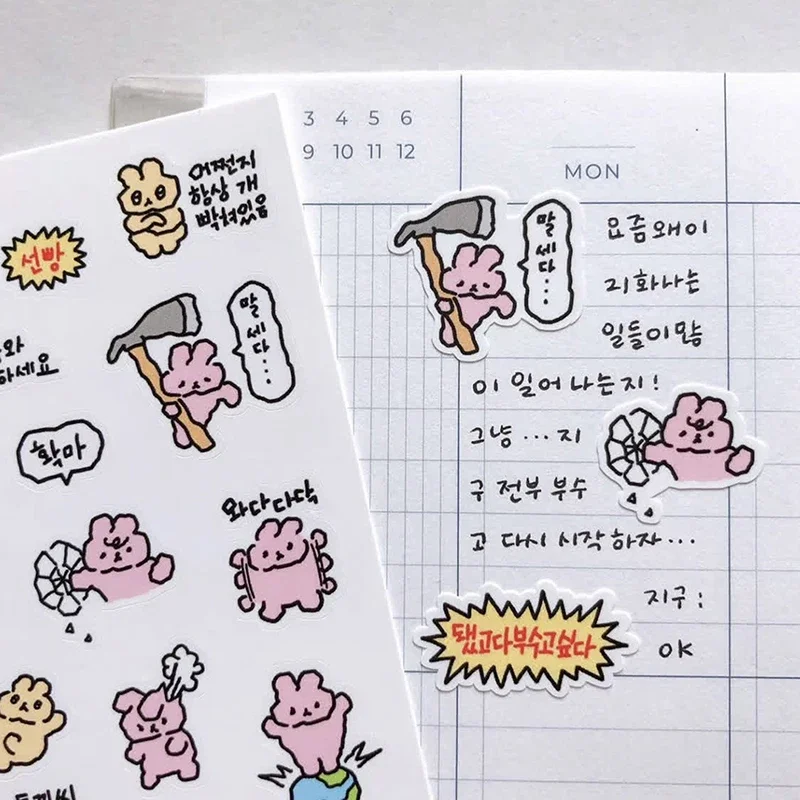 어쩐지
항상 개
빡쳐있음
선빵
말
세
다
...
와
하세요
확마
와다다닥
3 4 5 6
9 10 11 12
MON
말
세
다
...
요즘왜이
리화나는
일들이많
이 일어나는지!
그냥...지
구 전부 부수
고 다시 시작하자...
지구:
OK
됐고다부수고싶다